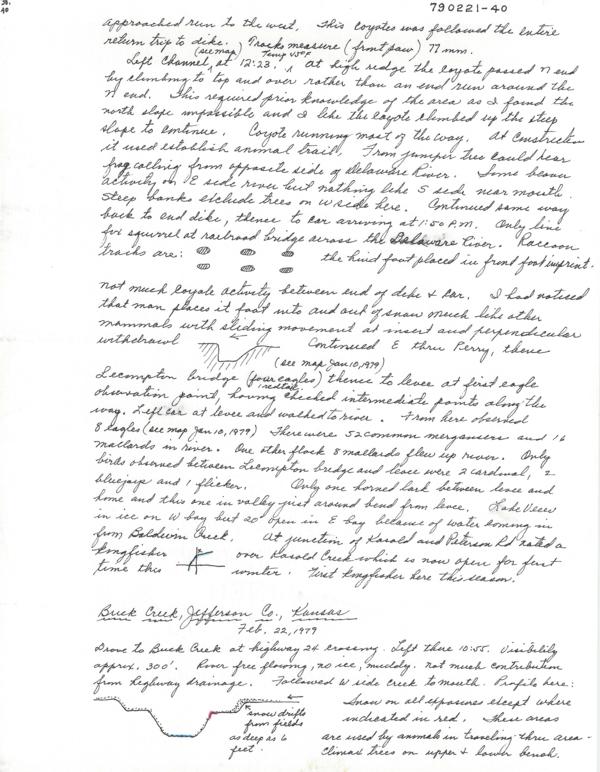 790221-40
approached run to the west. This coyotes was followed the entire
return trip to dike. (see map) Tracks measure (front paw) 77 mm.
Left channel, at 12:23. Temp 45°F At high ridge the coyote passed N end
by climbing to top and over rather than an end run around the
N end. This required prior knowledge of the area as I found the
north slope impassible and I like the coyote climbed up the steep
slope to continue. Coyote running most of the way. At construction
it used establish animal trail. From juniper tree could hear
frog calling from opposite side of Delaware River. Some beaver
activity on E side river but nothing like S side near mouth.
Steep banks exclude trees on W side here. Continued same way
back to end dike, thence to car arriving at 1:50 P.M. Only live
fox squirrel at railroad bridge across the Delaware River. Raccoon
tracks are: the hind foot placed in front foot imprint.
not much coyote activity between end of dike & car. I had noticed
that man places it foot into and out of snow much like other
mammals with sliding movement at insert and perpendicular
withdrawl Continued E thru Perry, thence
(see map Jan 10, 1979)
Lecompton bridge (four eagles) thence to levee at first eagle
observation point, having checked redtail intermediate points along the
way. Left car at levee and walked to river. From here observed
8 eagles (see map Jan 10, 1979) There were 52 common mergansers and 16
mallards in river. One other flock 8 mallards flew up river. Only
birds observed between Lecompton bridge and levee were 2 cardinal, 2
bluejays and 1 flicker. Only one horned lark between levee and
home and this one in valley just around bend from levee. Lake View
in ice on W bay but 20' open in E bay because of water coming in
from Baldwin Creek. At junction of Kasold and Peterson Rd noted a
kingfisher over Kasold Creek which is now open for first
time this winter. First kingfisher here this season.
Buck Creek, Jefferson Co., Kansas
Feb. 22, 1979
Drove to Buck Creek at highway 24 crossing. Left there 10:55. Visibility
approx. 300'. River free flowing, no ice, muddy. Not much contribution
from highway drainage. Followed W side creek to mouth. Profile here:
Snow on all exposures except where
snow drifts indicated in red. These areas
from fields
as deep as 6 are used by animals in traveling thru area -
feet. Climax trees on upper & lower bench.